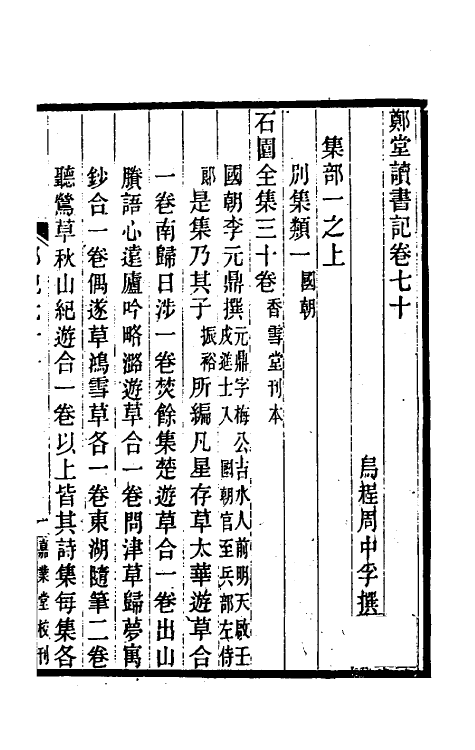 鄭堂讀書記卷七十
烏程周中孚撰
集部一之上
別集類一國朝
石園全集三十卷香雪堂刊本
國朝李元鼎撰元鼎字梅公吉水人前明天啟壬戌進士入 國朝官至兵部左侍
郞是集乃其子振裕所編凡星存草太華遊草合
一卷南歸日涉一卷焚餘集楚遊草合一卷出山
賸語心遠廬吟略潞遊草合一卷問津草歸夢寓
鈔合一卷偶遂草鴻雪草各一卷東湖隨筆二卷
聽鶯草秋山紀遊合一卷以上皆其詩集每集各
一 嘉業堂校刊